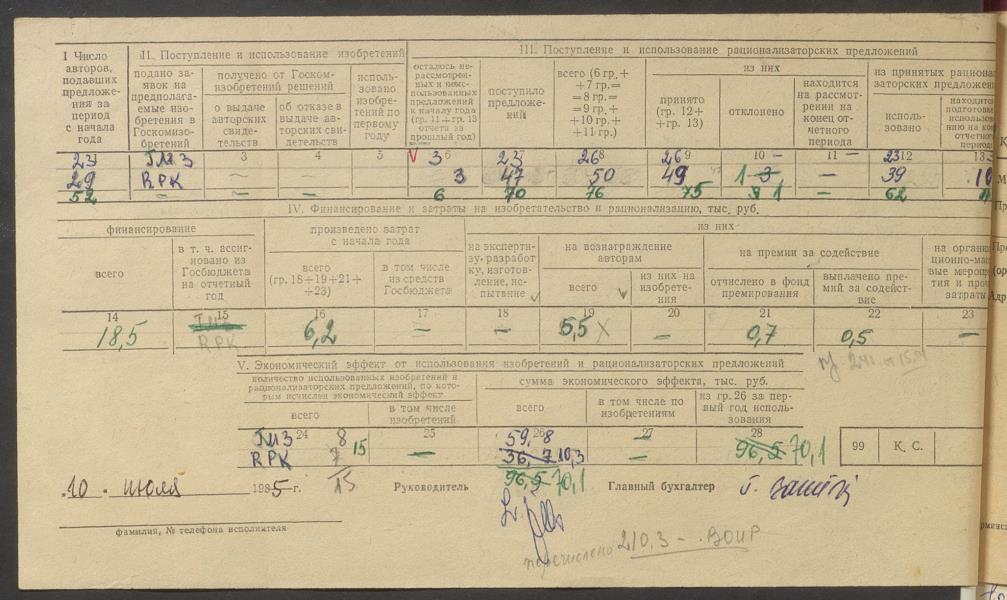 I Число авторов, подавших предложения за период с начала года
II. Поступление и использование изобретений
подано заявок на предполагаемые изобретения в Госкомизобретений
получено от Госкомизобретений решений
о выдаче авторских свидетельств
об отказе в выдаче авторских свидетельств
использовано изобретений по первому году
III. Поступление и использование рационализаторских предложений
осталось нерассмотренных и неиспользованных предложений к началу года (гр. 11 + гр. 13 отчета за прошлый год)
поступило предложений
всего (6 гр. + +7 гр.= =8 гр.= =9 гр.+ +10 гр.+ +11 гр.)
из них
принято (гр. 12+ +гр. 13)
отклонено
находится на рассмотрении на конец отчетного периода
из принятых рационализаторских предложений
использовано
3 4 5 6 7 8 9 10 11 12 13
23 ГМЗ 3 23 26 26 — — 23
29 RPK — — 3 47 50 49 1 — 39 10
52 — — — 6 70 76 75 1 — 62
IV. Финансирование и затраты на изобретательство и рационализацию, тыс. руб.
финансирование
всего
в т. ч. ассигновано из Госбюджета на отчетный год
произведено затрат с начала года
всего (гр. 18+19+21+ +23)
в том числе из средств Госбюджета
из них
на экспертизу, разработку, изготовление, испытание
на вознаграждение авторам
всего
из них на изобретения
на премии за содействие
отчислено в фонд премирования
выплачено премий за содействие
14 15 16 17 18 19 20 21 22 23
18,5 RPK 6,2 — — 5,5 — 0,7 0,5 —
V. Экономический эффект от использования изобретений и рационализаторских предложений
количество использованных изобретений и рационализаторских предложений, по которым исчислен экономический эффект
всего
в том числе изобретений
сумма экономического эффекта, тыс. руб.
всего
в том числе по изобретениям
из гр. 26 за первый год использования
24 25 26 27 28
ГМЗ 8 15 — 59,8 — 96,5 70,1
RPK 7 36,7 10,3 —
96,5 70,1
99 К. С.
10. июля 1985 г. 15
Руководитель
Главный бухгалтер
фамилия, № телефона исполнителя
перечислено 210,3 — ВОИР